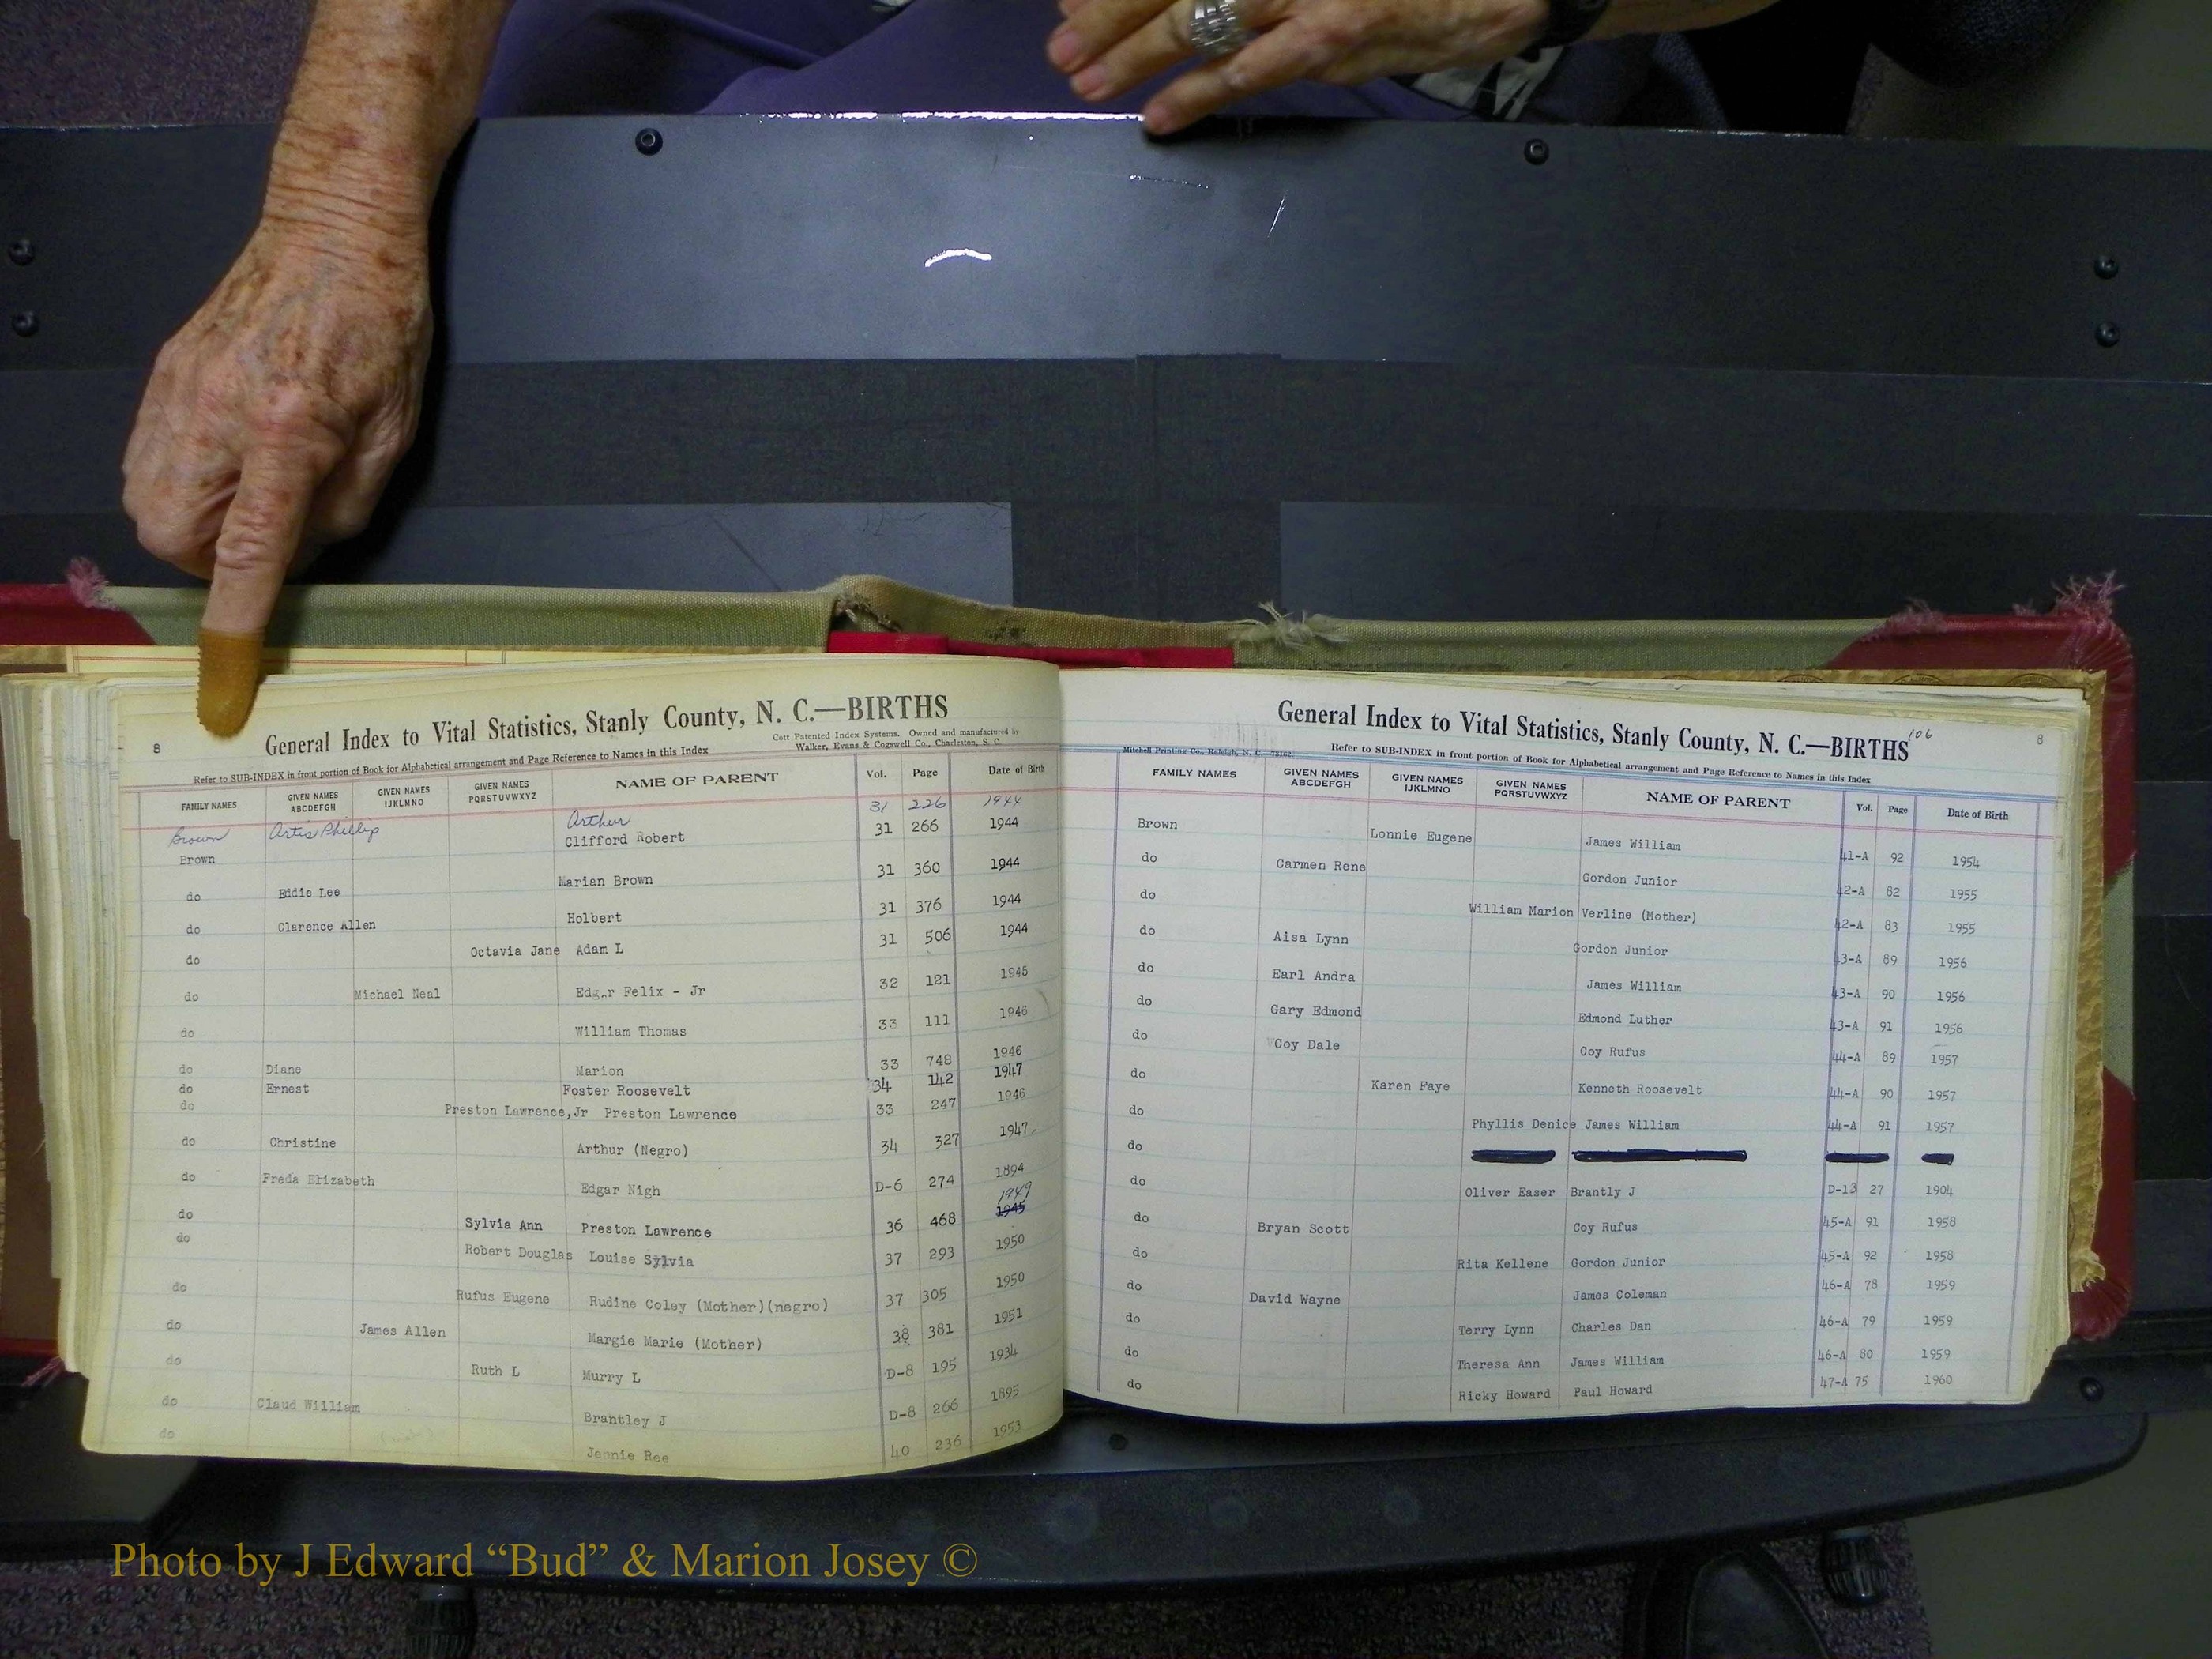 8
General Index to Vital Statistics, Stanly County, N. C.—BIRTHS
Cott Patented Index Systems. Owned and manufactured by
Walker, Evans & Cogswell Co., Charleston, S. C.
Refer to SUB-INDEX in front portion of Book for Alphabetical arrangement and Page Reference to Names in this Index
FAMILY NAMES GIVEN NAMES ABCDEFGH GIVEN NAMES IJKLMNO GIVEN NAMES PQRSTUVWXYZ NAME OF PARENT Vol. Page Date of Birth
Brown Artis Phillip Arthur 31 226 1944
Brown Clifford Robert 31 266 1944
do Eddie Lee Marian Brown 31 360 1944
do Clarence Allen Holbert 31 376 1944
do Octavia Jane Adam L 31 506 1944
do Michael Neal Edgar Felix - Jr 32 121 1945
do William Thomas 33 111 1946
do Diane Marion 33 748 1946
do Ernest Foster Roosevelt 34 142 1947
do Preston Lawrence,Jr Preston Lawrence 33 247 1946
do Christine Arthur (Negro) 34 327 1947
do Freda Elizabeth Edgar Nigh D-6 274 1894
do Sylvia Ann Preston Lawrence 36 468 1949 1945
do Robert Douglas Louise Sylvia 37 293 1950
do Rufus Eugene Rudine Coley (Mother)(negro) 37 305 1950
do James Allen Margie Marie (Mother) 38 381 1951
do Ruth L Murry L D-8 195 1934
do Claud William Brantley J D-8 266 1895
do Jennie Ree 40 236 1953
General Index to Vital Statistics, Stanly County, N. C.—BIRTHS 106
8
Mitchell Printing Co., Raleigh, N. C.
Refer to SUB-INDEX in front portion of Book for Alphabetical arrangement and Page Reference to Names in this Index
FAMILY NAMES GIVEN NAMES ABCDEFGH GIVEN NAMES IJKLMNO GIVEN NAMES PQRSTUVWXYZ NAME OF PARENT Vol. Page Date of Birth
Brown Lonnie Eugene James William 41-A 92 1954
do Carmen Rene Gordon Junior 42-A 82 1955
do William Marion Verline (Mother) 42-A 83 1955
do Aisa Lynn Gordon Junior 43-A 89 1956
do Earl Andra James William 43-A 90 1956
do Gary Edmond Edmond Luther 43-A 91 1956
do Coy Dale Coy Rufus 44-A 89 1957
do Karen Faye Kenneth Roosevelt 44-A 90 1957
do Phyllis Denice James William 44-A 91 1957
do
do Oliver Easer Brantly J D-13 27 1904
do Bryan Scott Coy Rufus 45-A 91 1958
do Rita Kellene Gordon Junior 45-A 92 1958
do David Wayne James Coleman 46-A 78 1959
do Terry Lynn Charles Dan 46-A 79 1959
do Theresa Ann James William 46-A 80 1959
do Ricky Howard Paul Howard 47-A 75 1960
Photo by J Edward “Bud” & Marion Josey ©